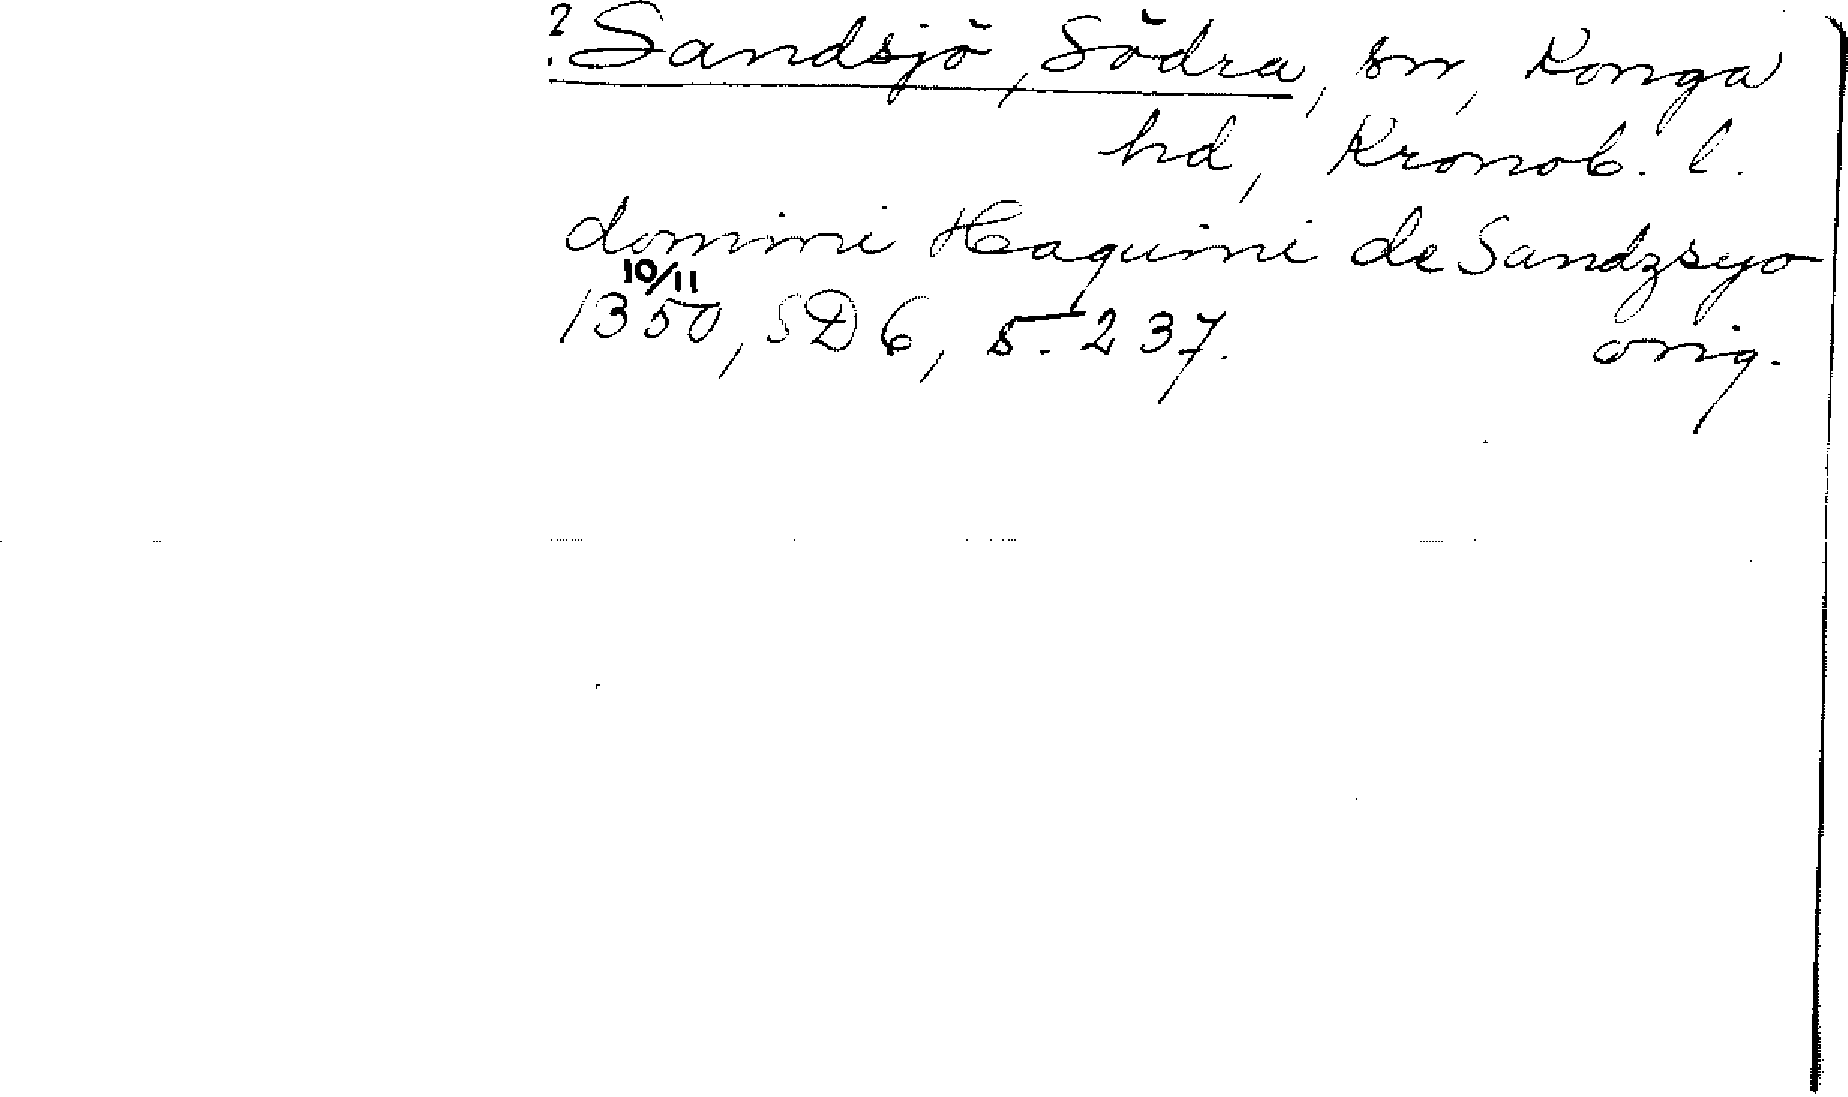 ? Sandsjö, Södra, sn, Konga
hd, Kronob. l.
domini Haquini de Sandzsyo
10/11
1350, SD 6, s. 237. orig.